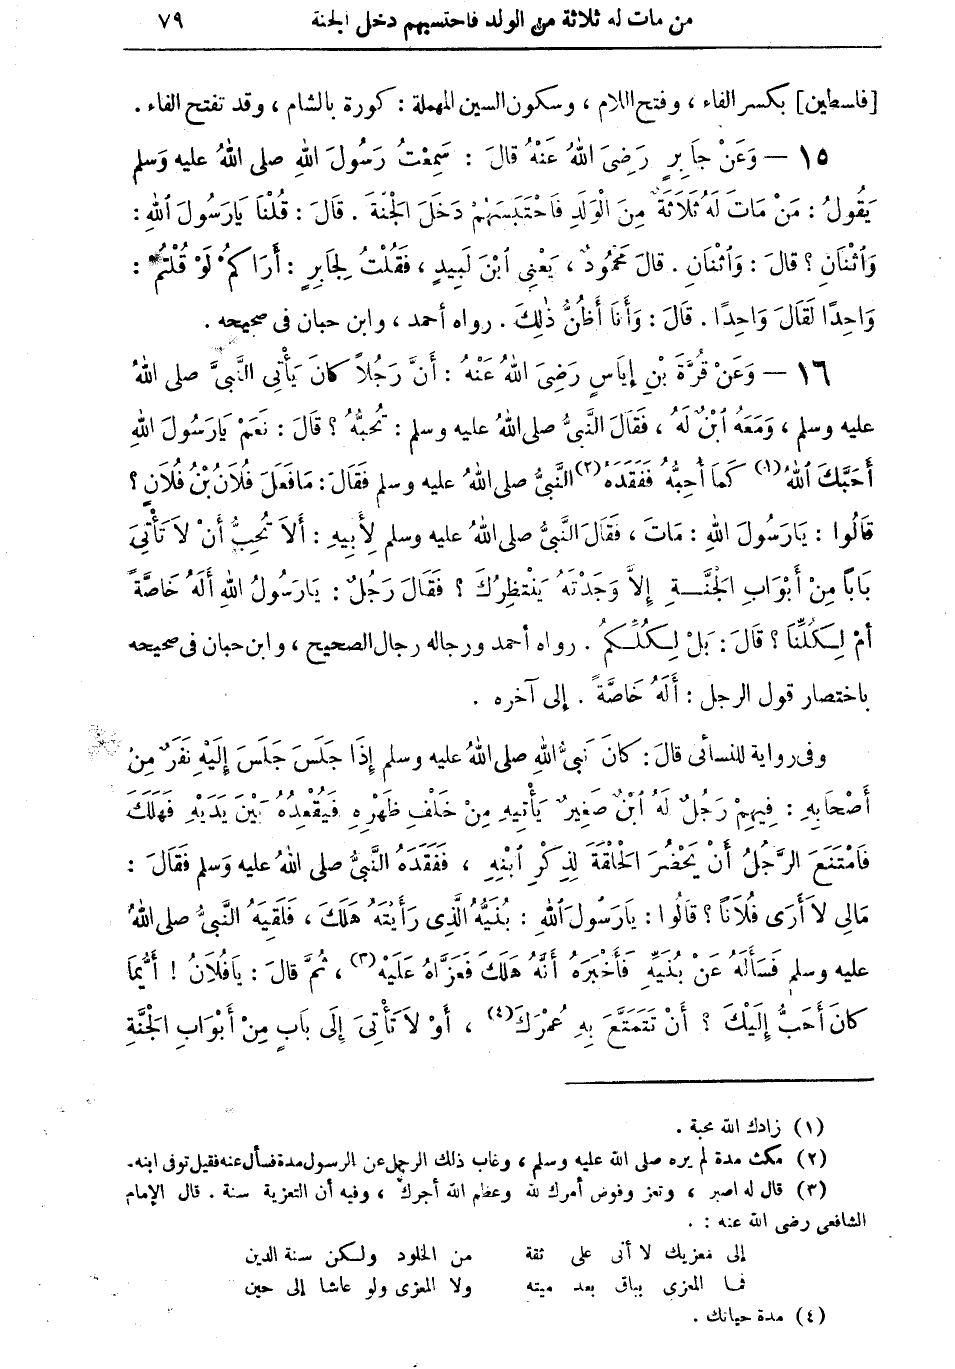 من مات له ثلاثة من الولد فاحتسبهم دخل الجنة ٧٩
[فلسطين] بكسر الفاء ، وفتح اللام ، وسكون السين المهملة : كورة بالشام ، وقد تفتح الفاء .
١٥ — وَعَنْ جَابِرٍ رَضِىَ اللهُ عَنْهُ قالَ : سَمِعْتُ رَسُولَ اللهِ صلى اللهُ عليه وَسلم
يَقُولُ : مَنْ مَاتَ لَهُ ثَلَاثَةٌ مِنَ الْوَلَدِ فَاحْتَبَسَهُمْ دَخَلَ الْجَنَّةَ . قَالَ : قُلْنَا يَارَسُولَ اللهِ :
وَٱثْنَانِ ؟ قالَ : وَٱثْنَانِ . قالَ مَحْمُودٌ ، يَعْنِى ٱبْنَ لَبِيدٍ ، فَقُلْتُ لِجَابِرٍ : أَرَاكُمْ لَوْ قُلْتُمْ :
وَاحِدًا لَقَالَ وَاحِدًا . قَالَ : وَأَنَا أَظُنُّ ذٰلِكَ . رواه أحمد ، وابن حبان فى صحيحه .
١٦ — وَعَنْ قُرَّةَ بْنِ إِيَاسٍ رَضِىَ اللهُ عَنْهُ : أَنَّ رَجُلاً كانَ يَأْتِى النَّبِىَّ صلى اللهُ
عليه وسلم ، وَمَعَهُ ٱبْنٌ لَهُ ، فَقَالَ النَّبِىُّ صلى اللهُ عليه وسلم : تُحِبُّهُ ؟ قالَ : نَعَمْ يَارَسُولَ اللهِ
أَحَبَّكَ ٱللهُ (١) كَمَا أُحِبُّهُ فَفَقَدَهُ (٢) النَّبِىُّ صلى اللهُ عليه وسلم فَقَالَ : مَافَعَلَ فُلَانُ بْنُ فُلَانٍ ؟
قَالُوا : يَارَسُولَ اللهِ : مَاتَ ، فَقَالَ النَّبِىُّ صلى اللهُ عليه وسلم لِأَبِيهِ : أَلاَ تُحِبُّ أَنْ لاَ تَأْتِىَ
بَابًا مِنْ أَبْوَابِ الْجَنَّةِ إِلاَّ وَجَدْتَهُ يَنْتَظِرُكَ ؟ فَقَالَ رَجُلٌ : يَارَسُولُ اللهِ أَلَهُ خَاصَّةً
أَمْ لِكُلِّنَا ؟ قَالَ : بَلْ لِكُلِّكُمْ . رواه أحمد ورجاله رجال الصحيح ، وابن حبان فى صحيحه
باختصار قول الرجل : أَلَهُ خَاصَّةً . إلى آخره .
وفى رواية للنسائى قالَ : كانَ نَبِىُّ اللهِ صلى اللهُ عليه وسلم إِذَا جَلَسَ جَلَسَ إِلَيْهِ نَفَرٌ مِنْ
أَصْحَابِهِ : فِيهِمْ رَجُلٌ لَهُ ٱبْنٌ صَغِيرٌ يَأْتِيهِ مِنْ خَلْفِ ظَهْرِهِ فَيُقْعِدُهُ بَيْنَ يَدَيْهِ فَهَلَكَ
فَامْتَنَعَ الرَّجُلُ أَنْ يَحْضُرَ الْحَلْقَةَ لِذِكْرِ ٱبْنِهِ ، فَفَقَدَهُ النَّبِىُّ صلى اللهُ عليه وَسلم فَقَالَ :
مَالِى لاَ أَرَى فُلَاناً ؟ قالُوا : يَارَسُولَ ٱللهِ : بُنَيُّهُ الَّذِى رَأَيْتَهُ هَلَكَ ، فَلَقِيَهُ النَّبِىُّ صلى اللهُ
عليه وسلم فَسَأَلَهُ عَنْ بُنَيِّهِ فَأَخْبَرَهُ أَنَّهُ هَلَكَ فَعَزَّاهُ عَلَيْهِ (٣) ، ثُمَّ قالَ : يَافُلَانُ ! أَيُّمَا
كانَ أَحَبُّ إِلَيْكَ ؟ أَنْ تَتَمَتَّعَ بِهِ عُمْرَكَ (٤) ، أَوْ لاَ تَأْتِىَ إِلَى بَابٍ مِنْ أَبْوَابِ الْجَنَّةِ
(١) زادك الله محبة .
(٢) مكث مدة لم يره صلى الله عليه وسلم ، وغاب ذلك الرجل عن الرسول مدة فسأل عنه فقيل توفى ابنه .
(٣) قال له اصبر ، وتعز وفوض أمرك لله وعظم الله أجرك ، وفيه أن التعزية سنة . قال الإمام
الشافعى رضى الله عنه : .
إنى معزيك لا أنى على ثقة من الخلود ولكن سنة الدين
فما المعزى بباق بعد ميته ولا المعزى ولو عاشا إلى حين
(٤) مدة حياتك .